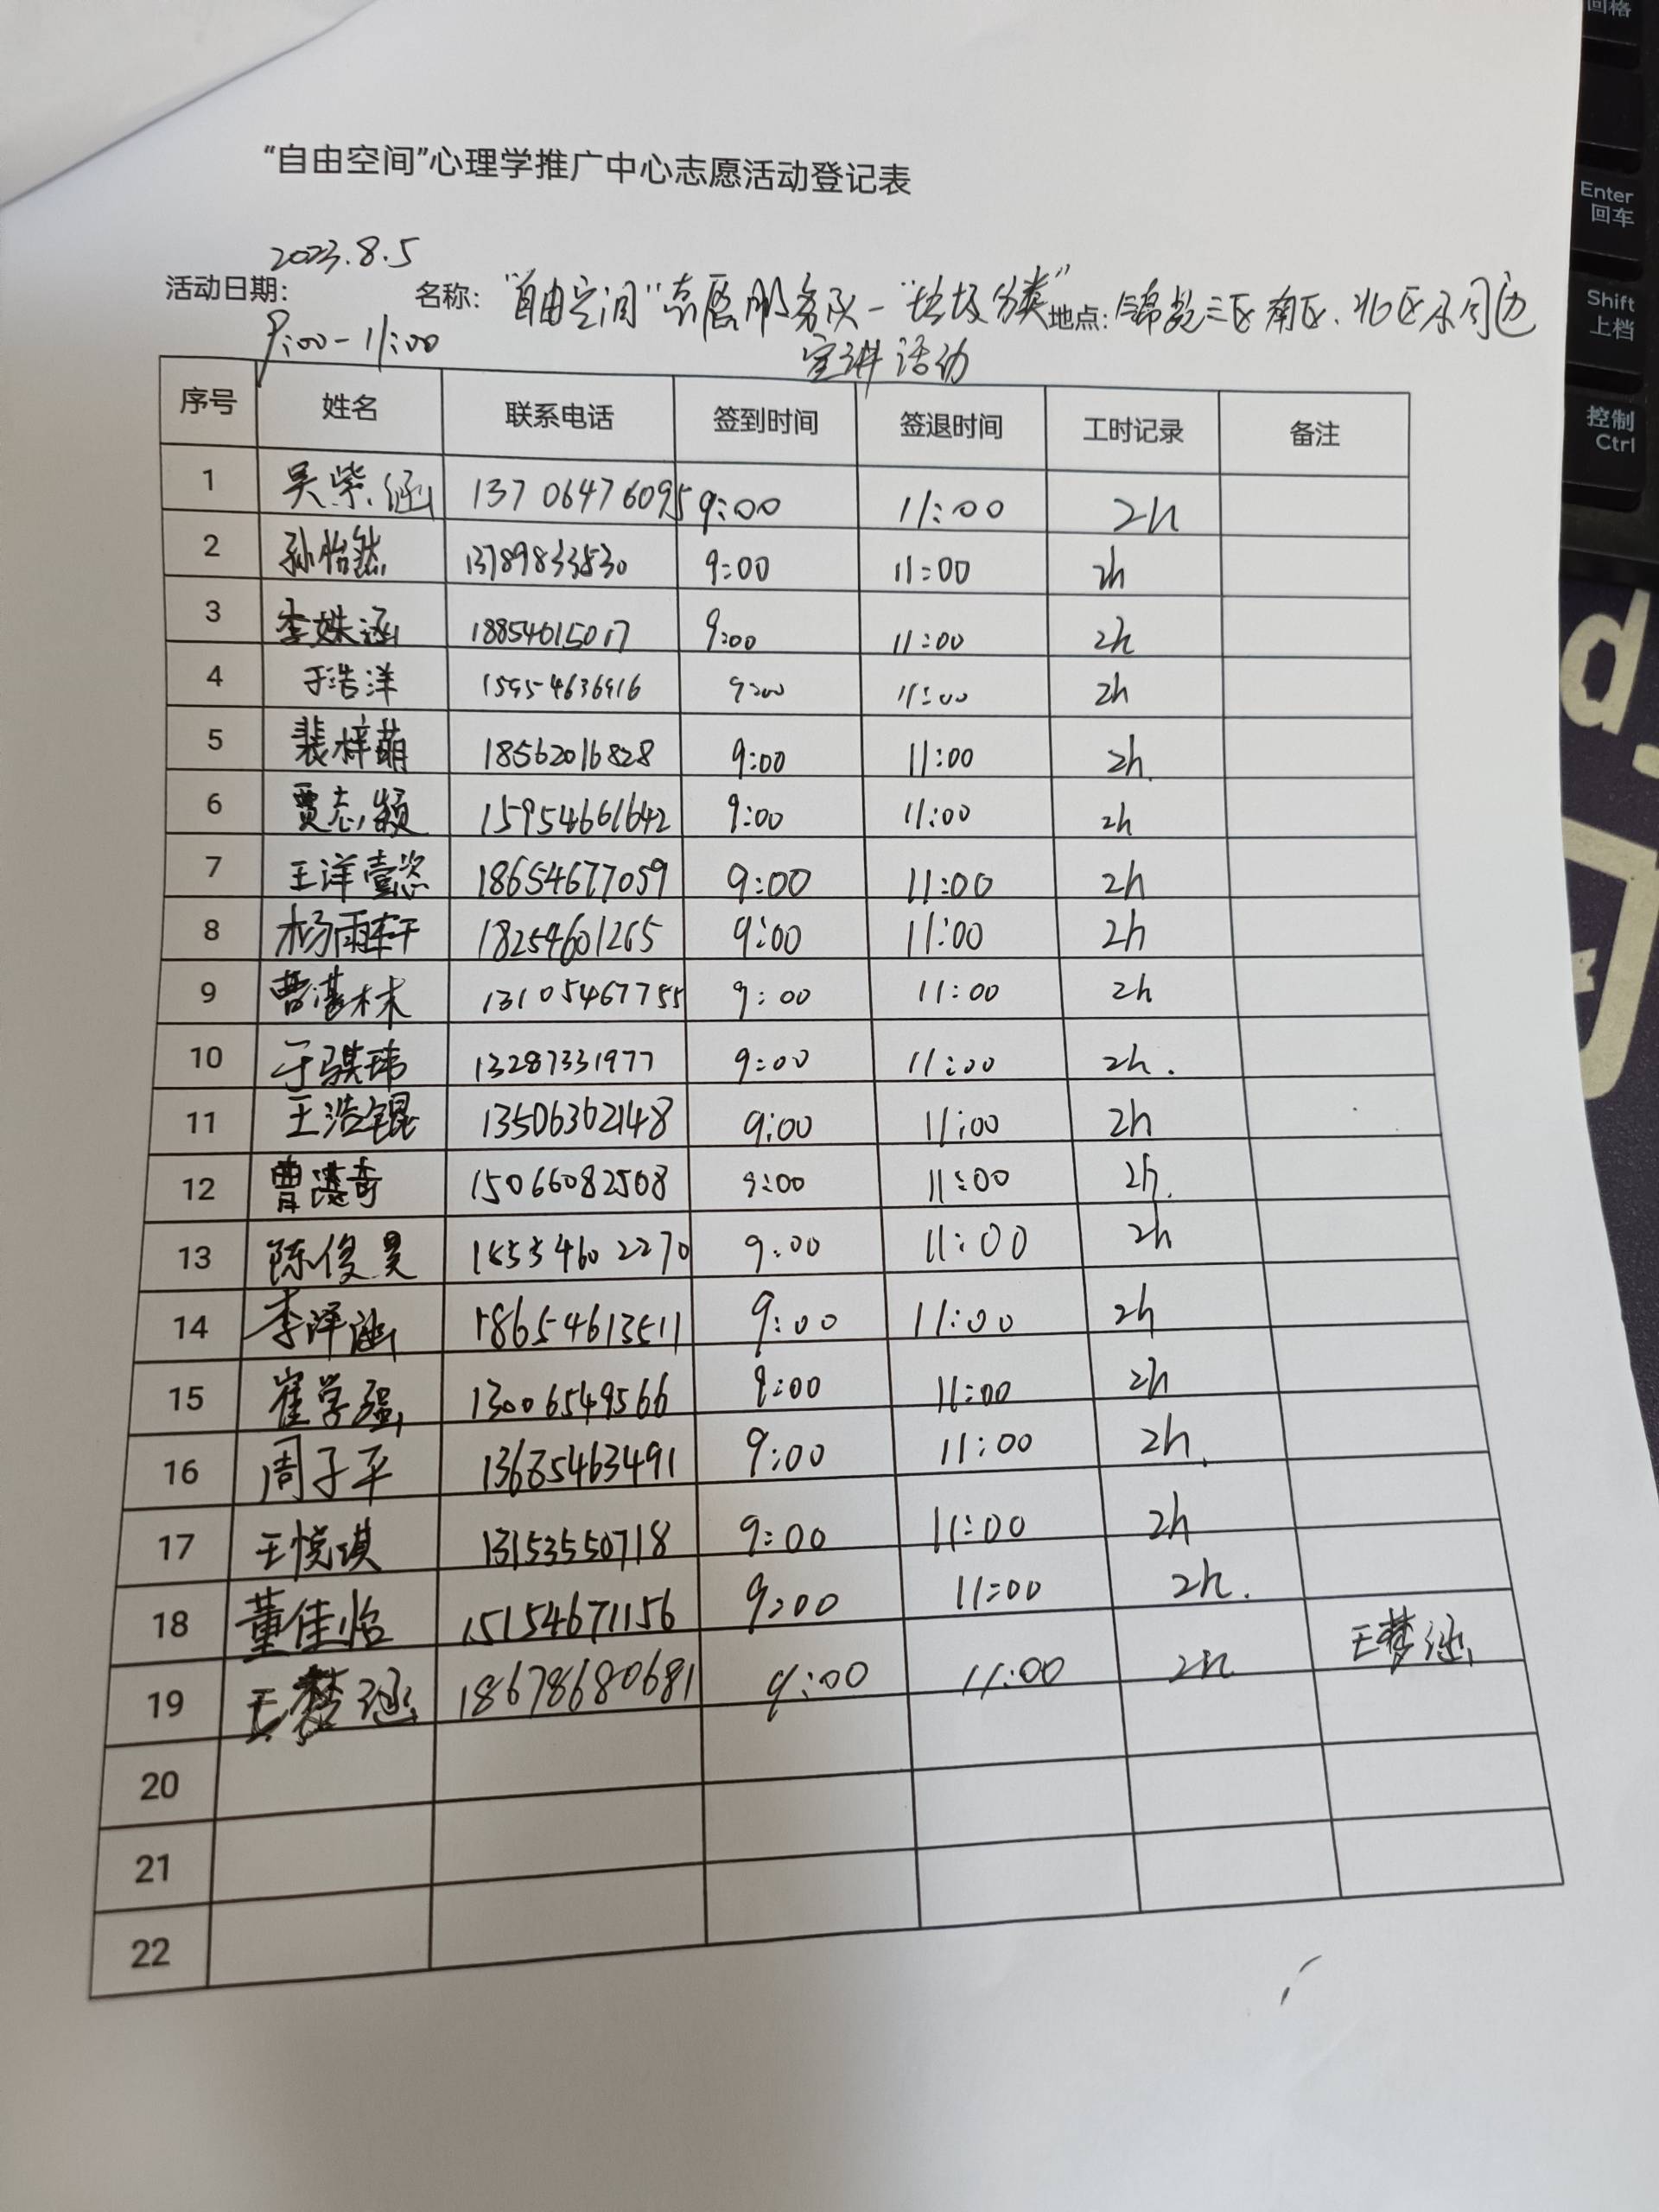 “自由空间”心理学推广中心志愿活动登记表
2023.8.5
活动日期: 名称: “自由空间”志愿服务队—“垃圾分类” 地点: 锦苑三区南区、北区及周边
9:00-11:00 宣讲活动
序号 姓名 联系电话 签到时间 签退时间 工时记录 备注
1 吴紫涵 13706476095 9:00 11:00 2h
2 孙怡然 13789833530 9:00 11:00 2h
3 李姝涵 18854615017 9:00 11:00 2h
4 于浩洋 15954636916 9:00 11:00 2h
5 裴梓萌 18562016828 9:00 11:00 2h
6 贾志颖 15954661642 9:00 11:00 2h
7 王洋壹恣 18654677059 9:00 11:00 2h
8 杨雨轩 18254601265 9:00 11:00 2h
9 曹湛林 13105467755 9:00 11:00 2h
10 于骐玮 13287331977 9:00 11:00 2h.
11 王浩锟 13506362148 9:00 11:00 2h
12 曹湛奇 15066082508 9:00 11:00 2h.
13 陈俊昊 18554602270 9:00 11:00 2h
14 李泽涵 18654613511 9:00 11:00 2h
15 崔学强 13006549566 9:00 11:00 2h
16 周子平 13685463491 9:00 11:00 2h.
17 王悦琪 13153550718 9:00 11:00 2h
18 董佳怡 15154671156 9:00 11:00 2h.
19 王梦涵 18678680681 9:00 11:00 2h 王梦涵
20
21
22
回格
Enter
回车
Shift
上档
控制
Ctrl
d